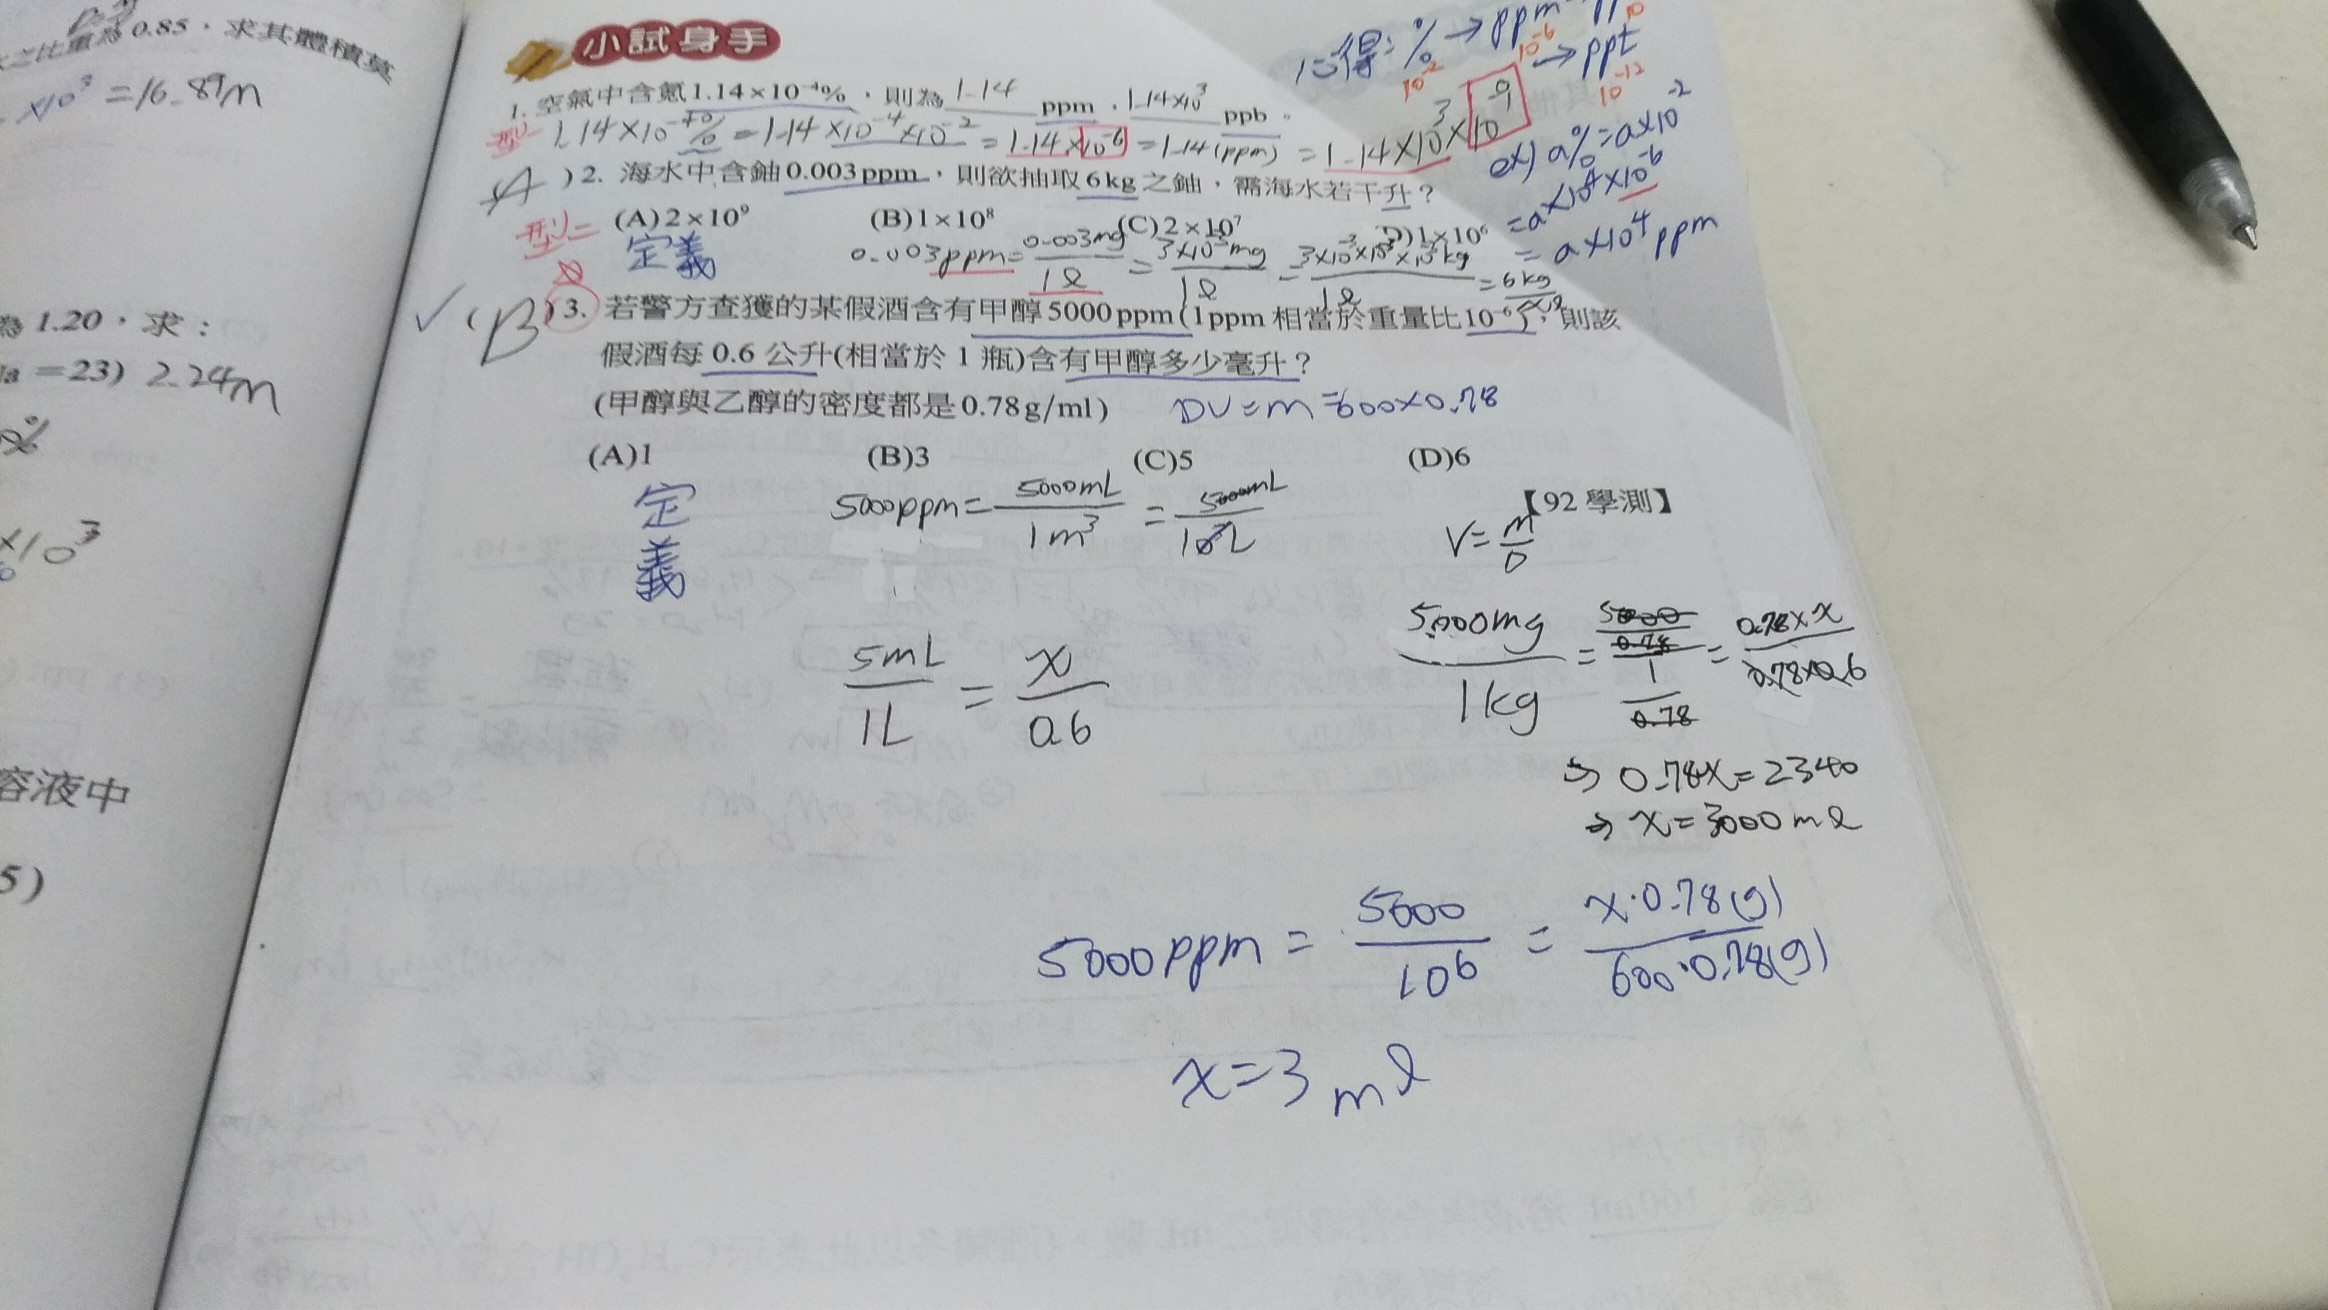 之比重為0.85,求其體積莫
×10³ =16.89m
為 1.20,求:
=23) 2.24m
×10³
溶液中
5)
小試身手
記得: % → ppm
10⁻² 10⁻⁶
→ ppt
10⁻¹²
1. 空氣中含氪1.14×10⁻⁴%,則為 1.14 ppm,1.14×10³ ppb。
型一 1.14×10⁻⁴% =1.14×10⁻⁴×10⁻² =1.14×10⁻⁶ =1.14(ppm) =1.14×10³×10⁻⁹
ex) a%=a×10⁻²
=a×10⁴×10⁻⁶
=a×10⁴ppm
(A)2. 海水中含鈾0.003ppm,則欲抽取6kg之鈾,需海水若干升?
型二 (A)2×10⁹ (B)1×10⁸ (C)2×10⁷ (D)1×10⁶
定義 0.003ppm=0.003mg/1ℓ =3×10⁻³mg/1ℓ =3×10⁻³×10⁻³×10⁻³kg/1ℓ =6kg/xℓ
✓(B)3. 若警方查獲的某假酒含有甲醇5000ppm(1ppm相當於重量比10⁻⁶),則該
假酒每0.6公升(相當於1瓶)含有甲醇多少毫升?
(甲醇與乙醇的密度都是0.78g/ml) DV=m=600×0.78
(A)1 (B)3 (C)5 (D)6
【92學測】
定義 5000ppm=5000mL/1m³ =5000mL/10³L
V=m/D
5mL/1L = x/0.6
5000mg/1kg = 5000/0.78/1/0.78 = 0.78×x/0.78×0.6
⇒ 0.78x=2340
⇒ x=3000mℓ
5000ppm = 5000/10⁶ = x·0.78(g)/600·0.78(g)
x=3mℓ